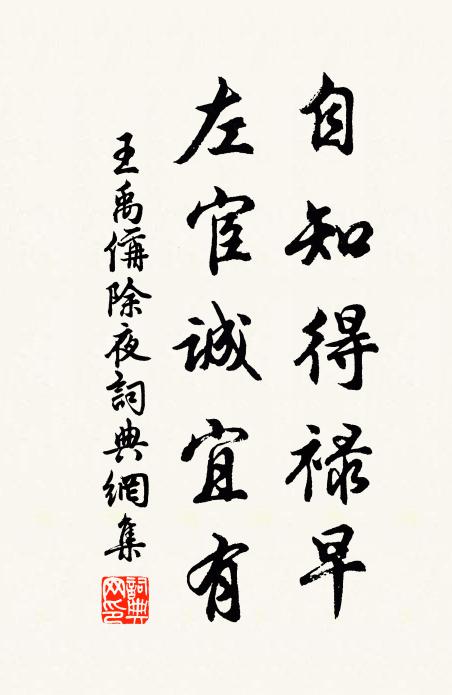 自知得禄早
左宦誠宜有
王禹偁除夜詞典網集
詞典网印